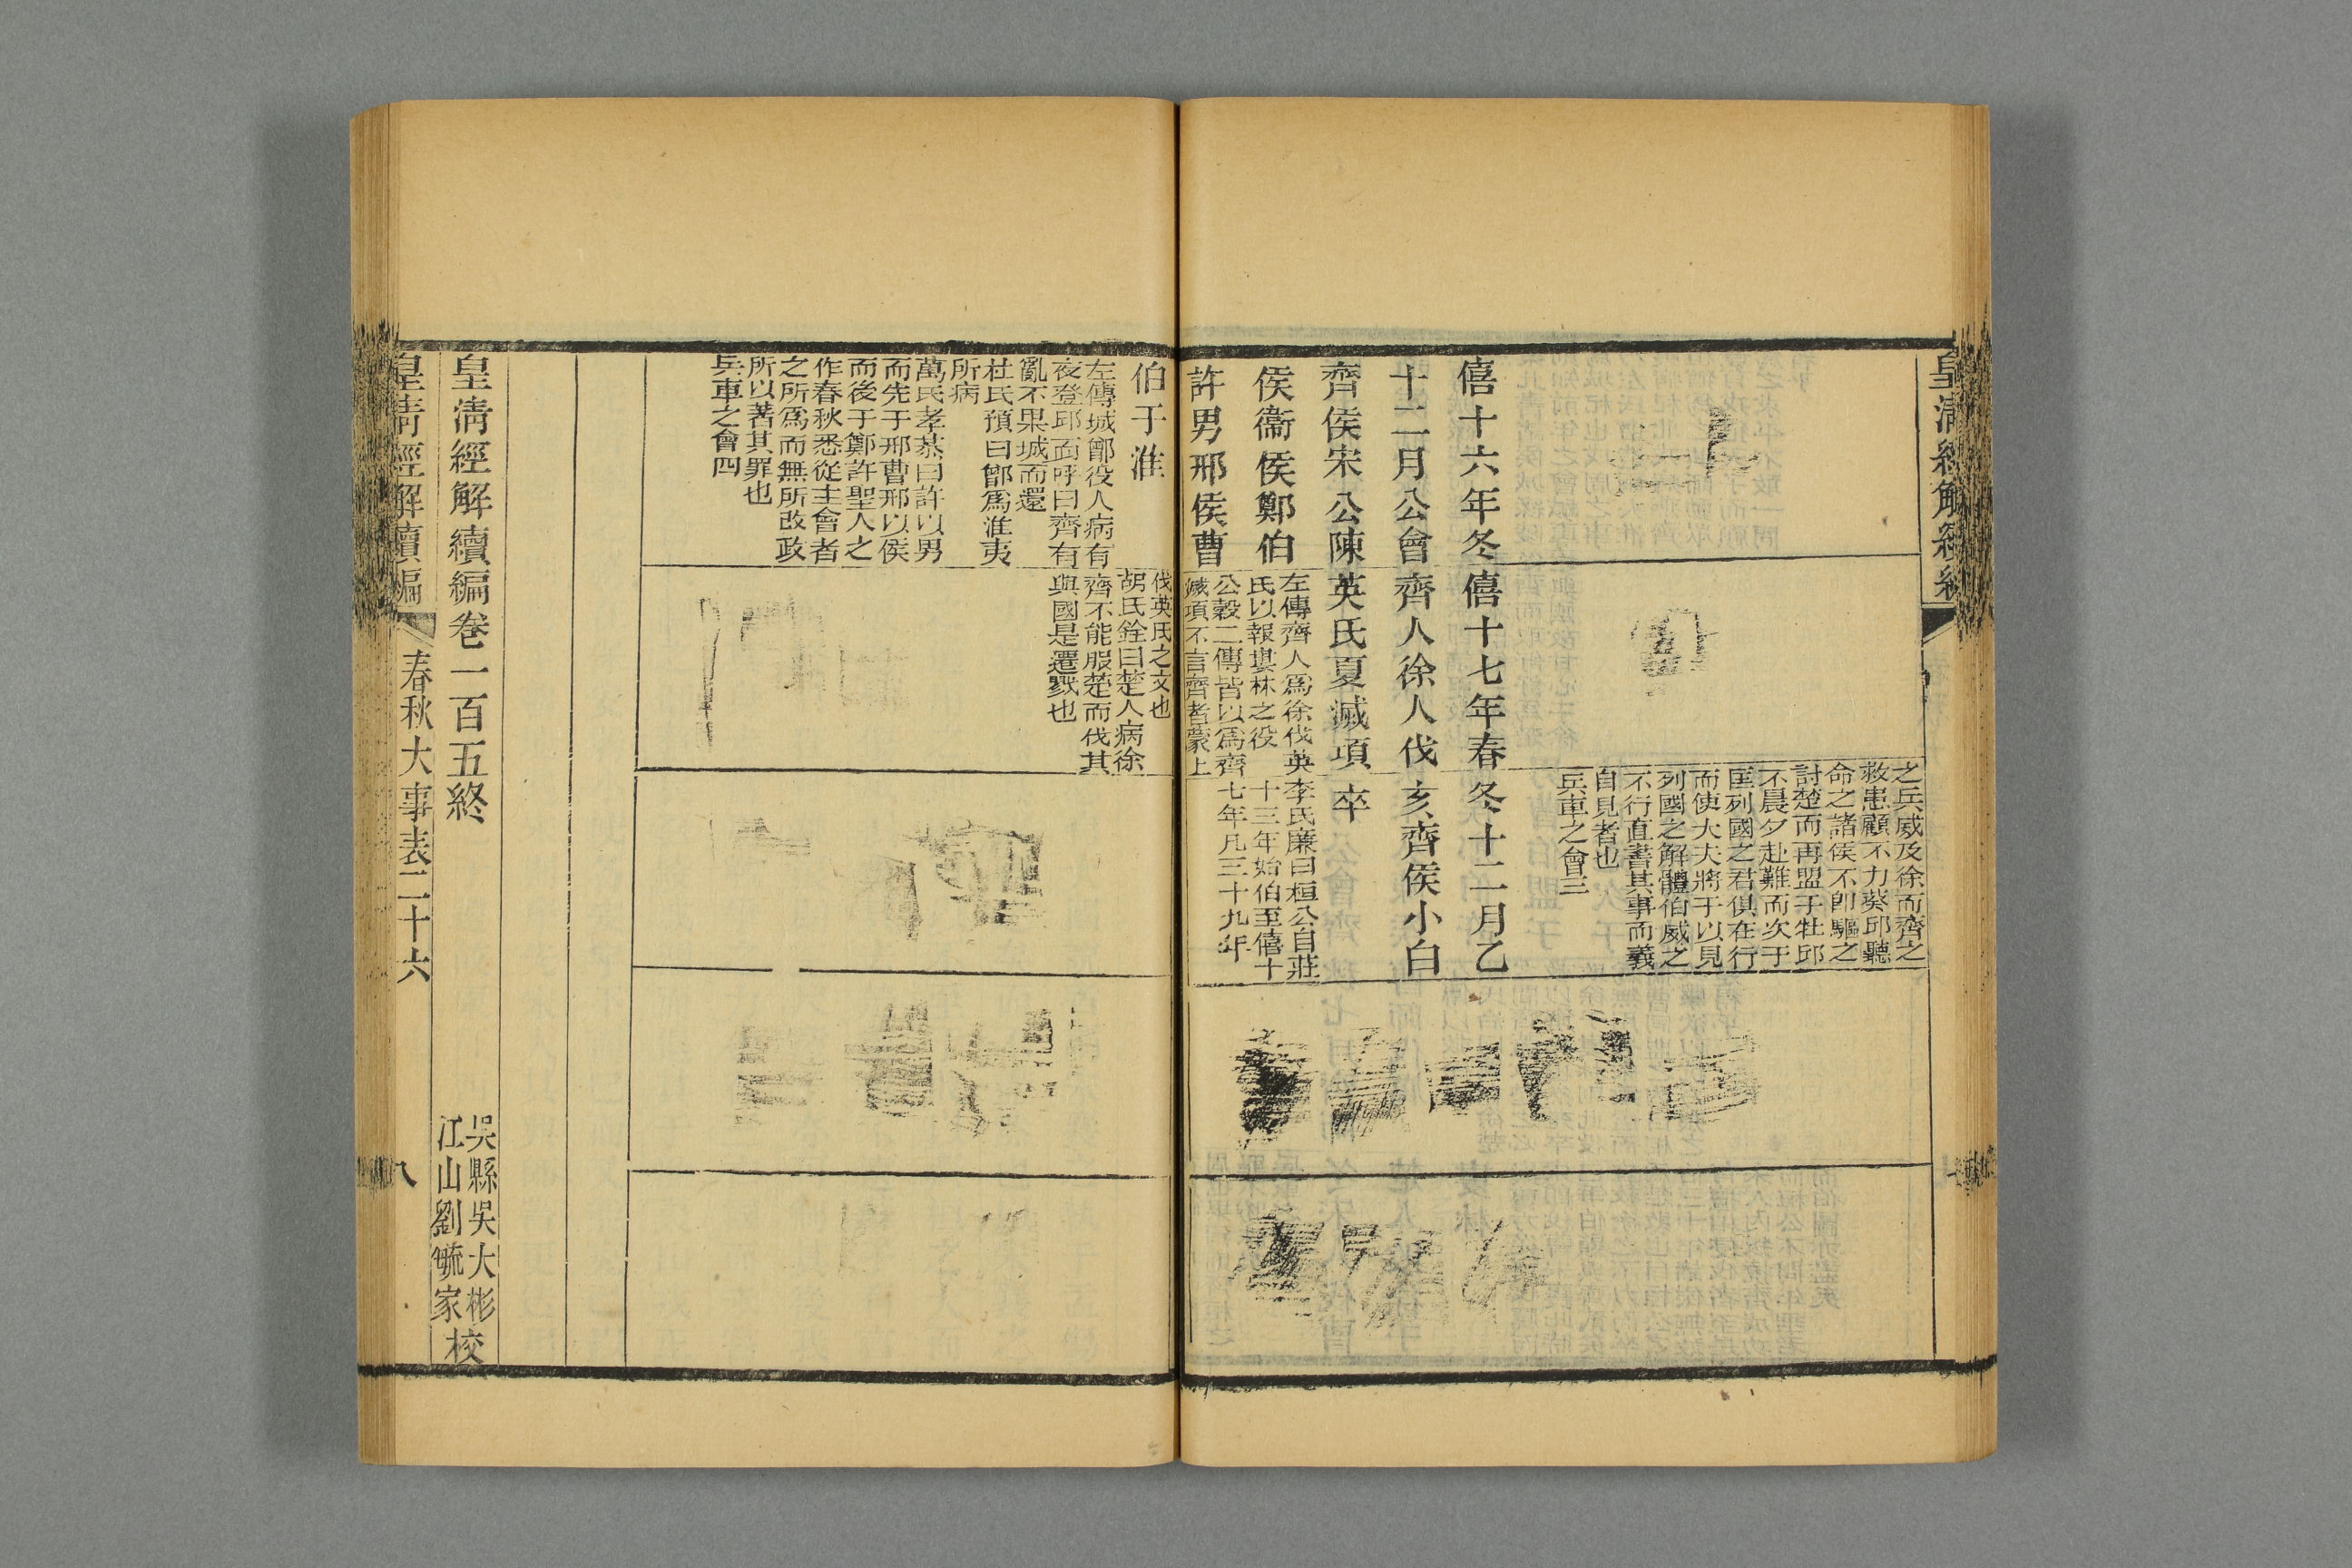 之兵威及徐而齊之
救患顧不力葵邱聽
命之諸侯不卽驅之
討楚而再盟于牡邱
不晨夕赴難而次于
匡列國之君俱在行
而使大夫將于以見
列國之解體伯威之
不行直書其事而義
自見者也
兵車之會三
僖十六年冬
十二月公會
齊侯宋公陳
侯衞侯鄭伯
許男邢侯曹
僖十七年春
齊人徐人伐
英氏夏滅項
左傳齊人爲徐伐英
氏以報婁林之役
公穀二傳皆以爲齊
滅項不言齊者蒙上
冬十二月乙
亥齊侯小白
卒
李氏廉曰桓公自莊
十三年始伯至僖十
七年凡三十九年
伯于淮
左傳城鄫役人病有
夜登邱而呼曰齊有
亂不果城而還
杜氏預曰鄫爲淮夷
所病
萬氏孝恭曰許以男
而先于邢曹邢以侯
而後于鄭許聖人之
作春秋悉從主會者
之所爲而無所改政
所以著其罪也
兵車之會四
伐英氏之文也
胡氏銓曰楚人病徐
齊不能服楚而伐其
與國是遷戮也
皇淸經解續編卷一百五終
吳縣吳大彬
江山劉毓家
校
皇淸經解續編
春秋大事表二十六
八